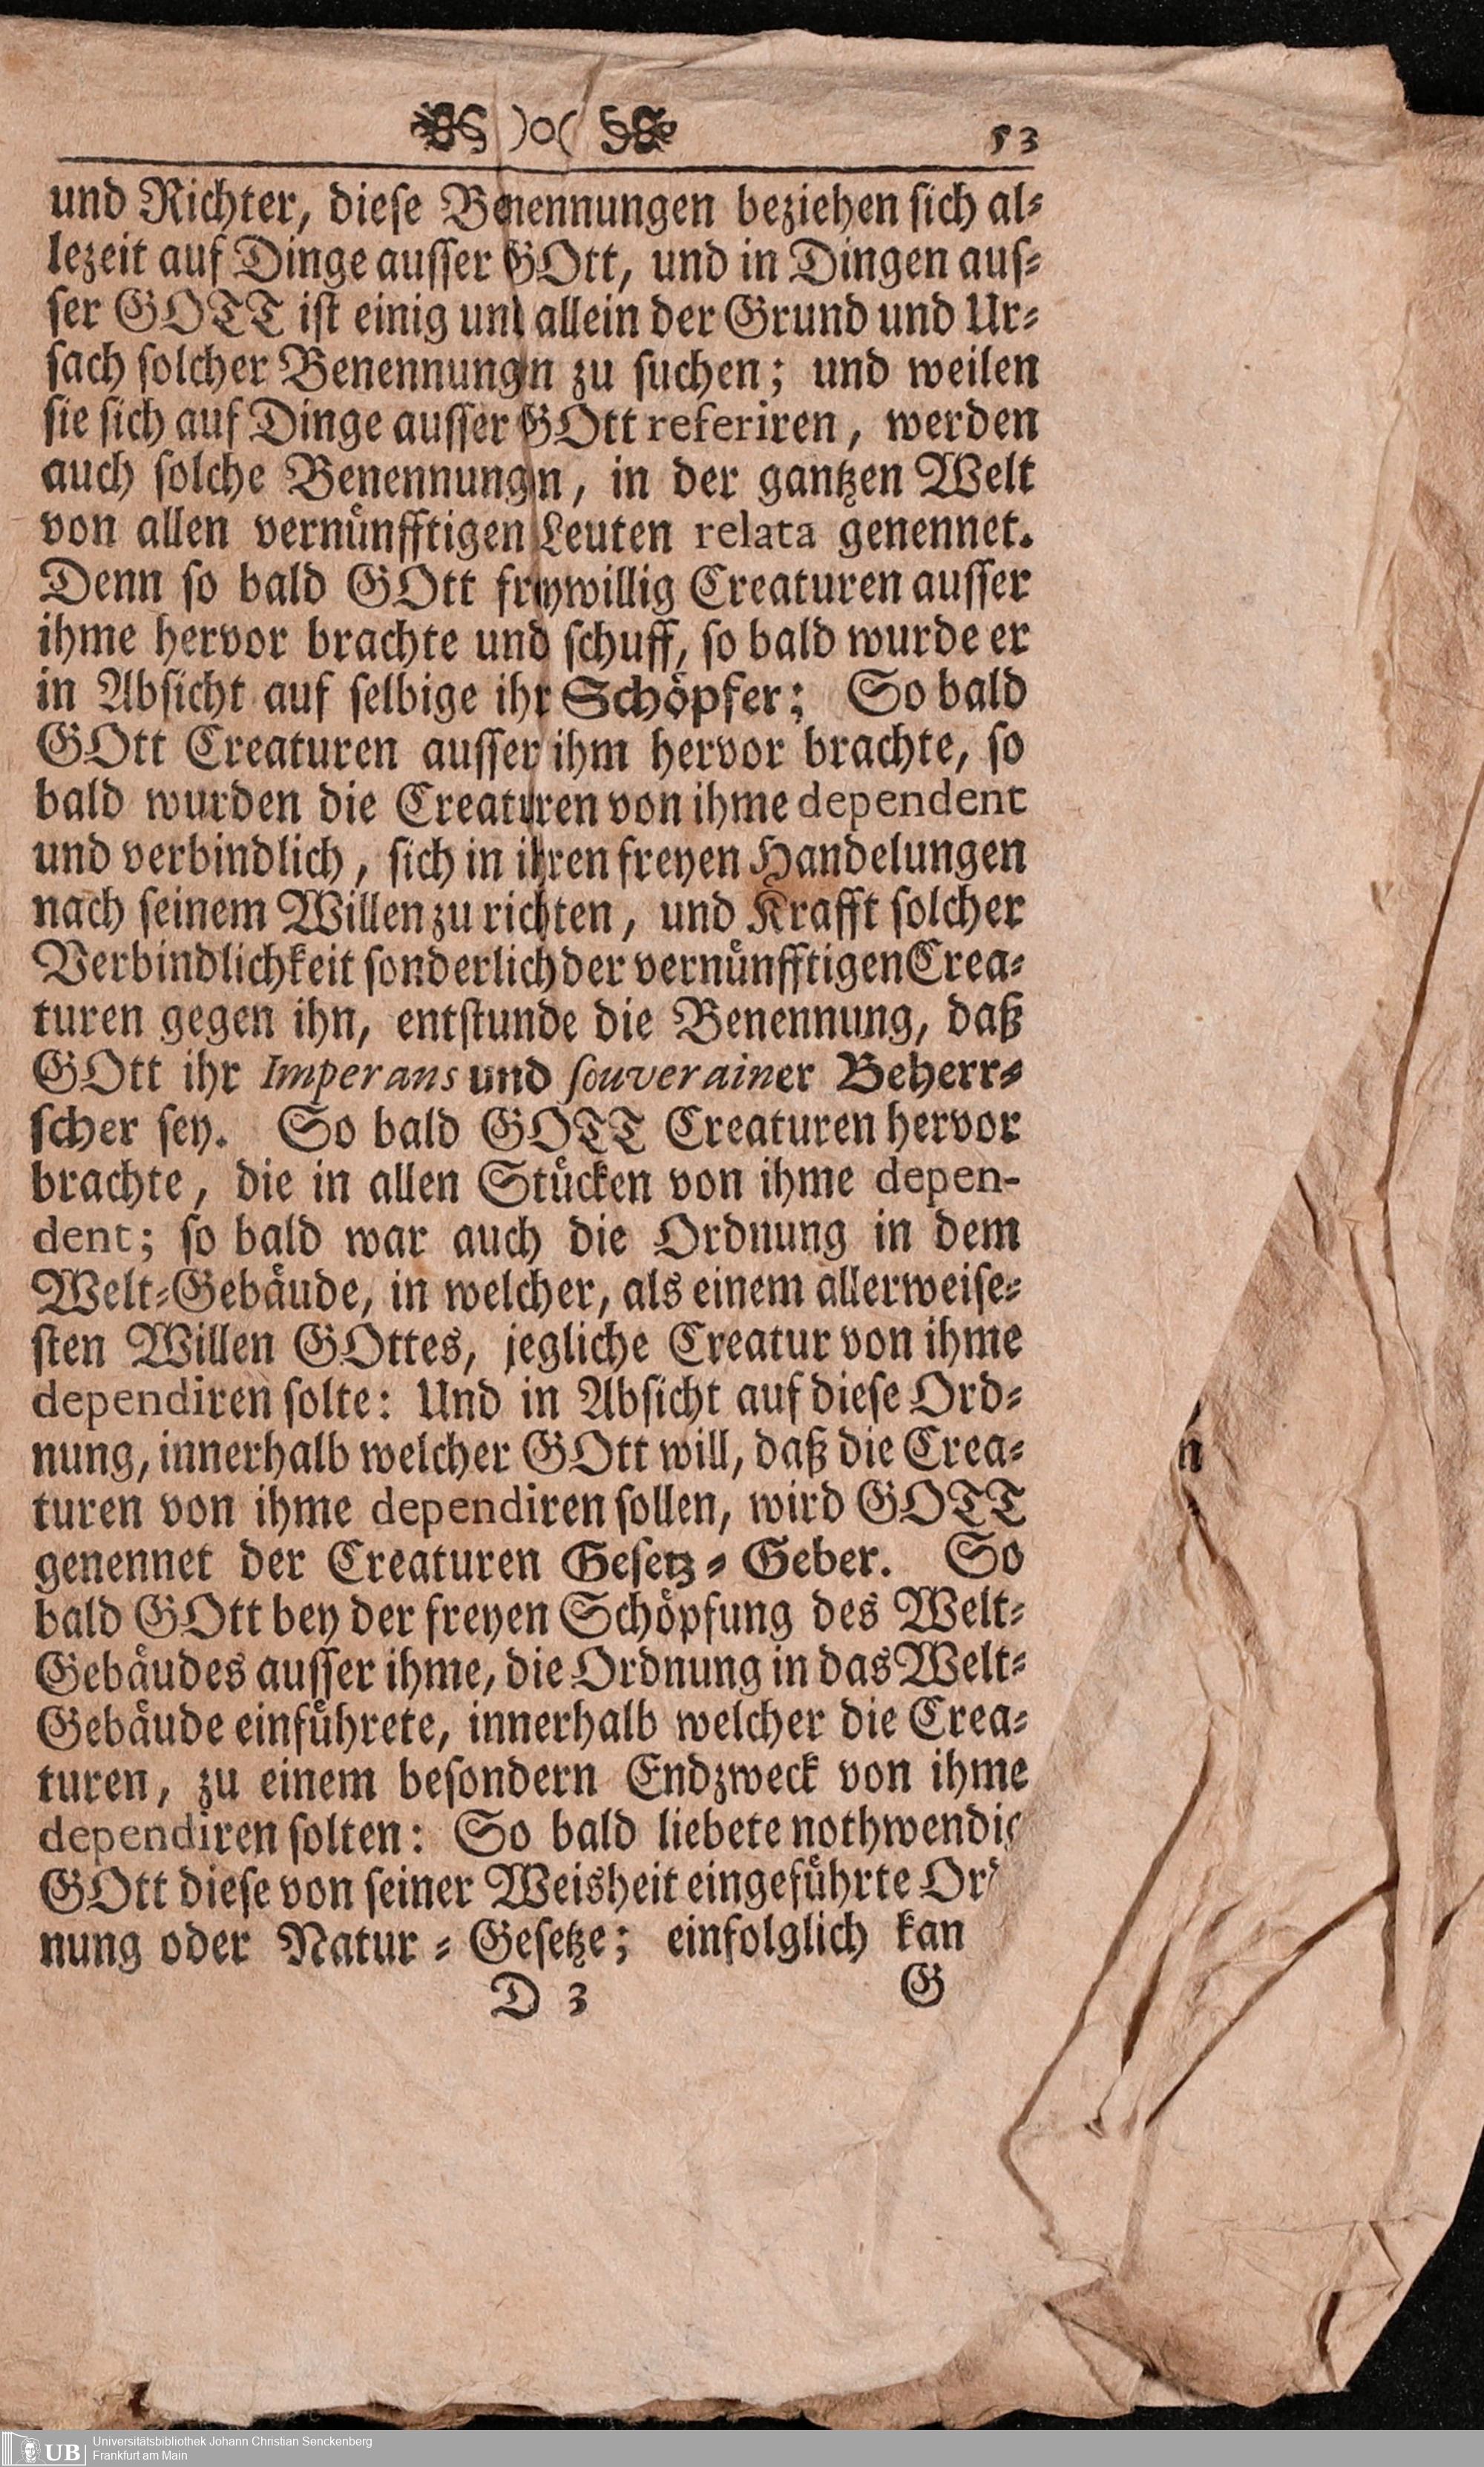 )o( 53
und Richter, dieſe Benennungen beziehen ſich al⸗
lezeit auf Dinge auſſer GOtt, und in Dingen auſ⸗
ſer GOTT iſt einig und allein der Grund und Ur⸗
ſach ſolcher Benennungen zu ſuchen; und weilen
ſie ſich auf Dinge auſſer GOtt referiren, werden
auch ſolche Benennungen, in der gantzen Welt
von allen vernuͤnfftigen Leuten relata genennet.
Denn ſo bald GOtt freywillig Creaturen auſſer
ihme hervor brachte und ſchuff, ſo bald wurde er
in Abſicht auf ſelbige ihr Schoͤpfer; So bald
GOtt Creaturen auſſer ihm hervor brachte, ſo
bald wurden die Creaturen von ihme dependent
und verbindlich, ſich in ihren freyen Handelungen
nach ſeinem Willen zu richten, und Krafft ſolcher
Verbindlichkeit ſonderlich der vernuͤnfftigen Crea⸗
turen gegen ihn, entſtunde die Benennung, daß
GOtt ihr Imperans und ſouverainer Beherr⸗
ſcher ſey. So bald GOTT Creaturen hervor
brachte, die in allen Stuͤcken von ihme depen-
dent; ſo bald war auch die Ordnung in dem
Welt⸗Gebaͤude, in welcher, als einem allerweiſe⸗
ſten Willen GOttes, jegliche Creatur von ihme
dependiren ſolte: Und in Abſicht auf dieſe Ord⸗
nung, innerhalb welcher GOtt will, daß die Crea⸗
turen von ihme dependiren ſollen, wird GOTT
genennet der Creaturen Geſetz⸗Geber. So
bald GOtt bey der freyen Schoͤpfung des Welt⸗
Gebaͤudes auſſer ihme, die Ordnung in das Welt⸗
Gebaͤude einfuͤhrete, innerhalb welcher die Crea⸗
turen, zu einem beſondern Endzweck von ihme
dependiren ſolten: So bald liebete nothwendig
GOtt dieſe von ſeiner Weisheit eingefuͤhrte Ord
nung oder Natur⸗Geſetze; einfolglich kan
D 3 G
n
UB Universitätsbibliothek Johann Christian Senckenberg
Frankfurt am Main